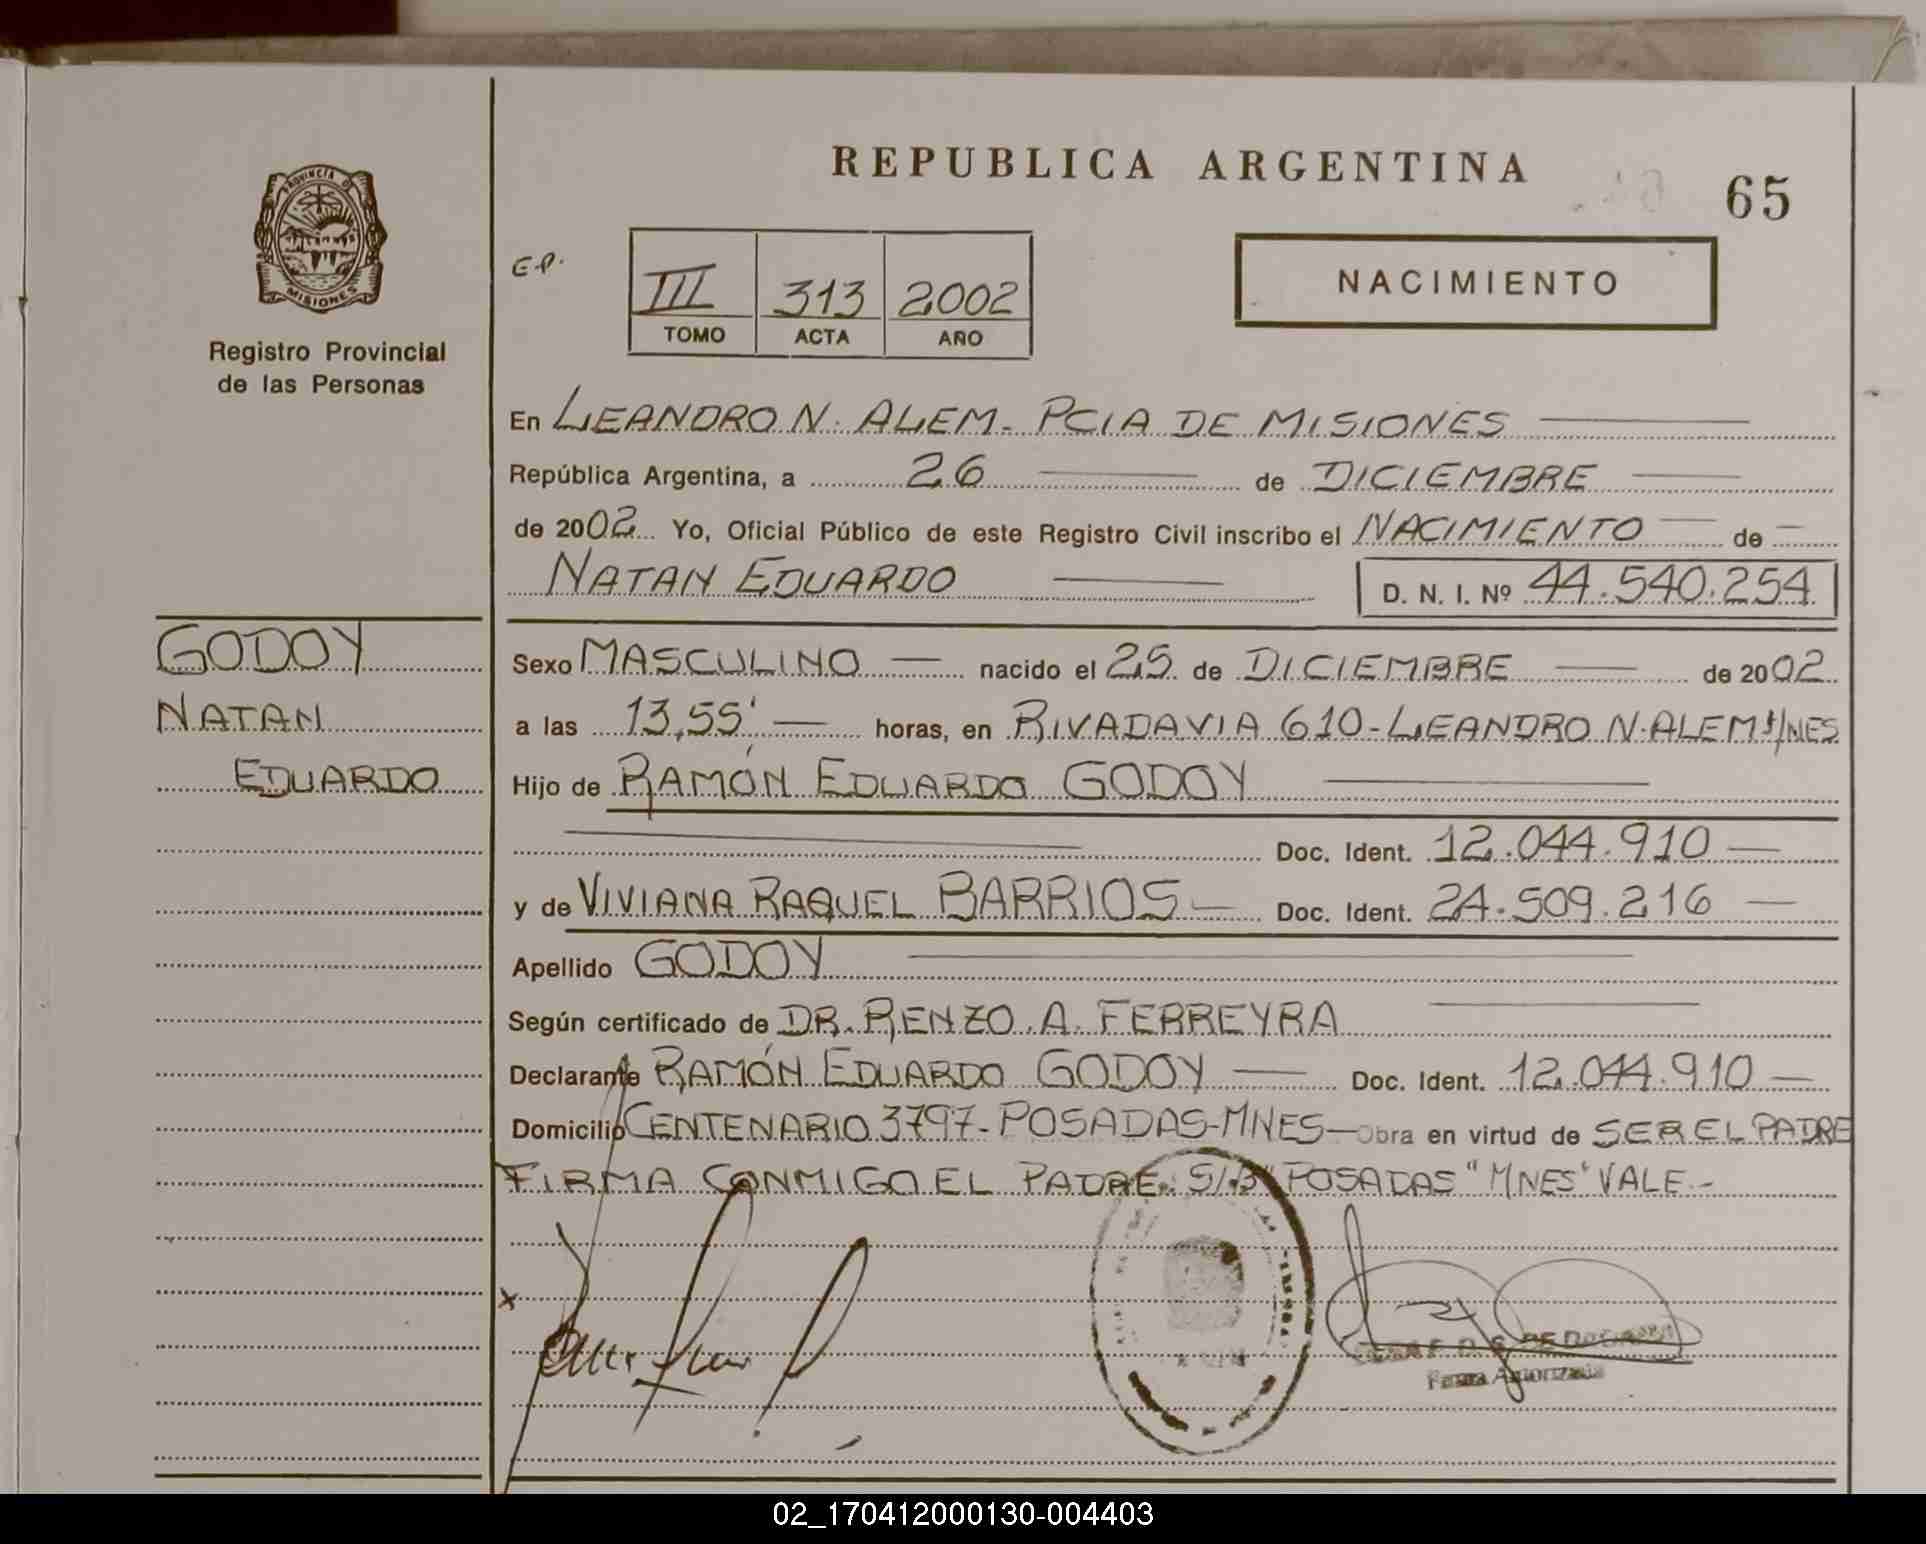 REPUBLICA ARGENTINA
65
PROVINCIA DE
MISIONES
Registro Provincial
de las Personas
E.P.
III 313 2002
TOMO ACTA AÑO
NACIMIENTO
En LEANDRO N. ALEM. PCIA DE MISIONES
República Argentina, a 26 de DICIEMBRE
de 2002 Yo, Oficial Público de este Registro Civil inscribo el NACIMIENTO de
NATAN EDUARDO D. N. I. Nº 44.540.254
GODOY
NATAN
EDUARDO
Sexo MASCULINO nacido el 25 de DICIEMBRE de 2002
a las 13,55' horas, en RIVADAVIA 610-LEANDRO N.ALEM M/NES
Hijo de RAMÓN EDUARDO GODOY
Doc. Ident. 12.044.910
y de VIVIANA RAQUEL BARRIOS Doc. Ident. 24.509.216
Apellido GODOY
Según certificado de DR. RENZO A. FERREYRA
Declarante RAMÓN EDUARDO GODOY Doc. Ident. 12.044.910
Domicilio CENTENARIO 3797-POSADAS-MNES Obra en virtud de SER EL PADRE
FIRMA CONMIGO EL PADRE. S/B "POSADAS" "MNES" VALE.-
x
Firma Autorizada
02_170412000130-004403